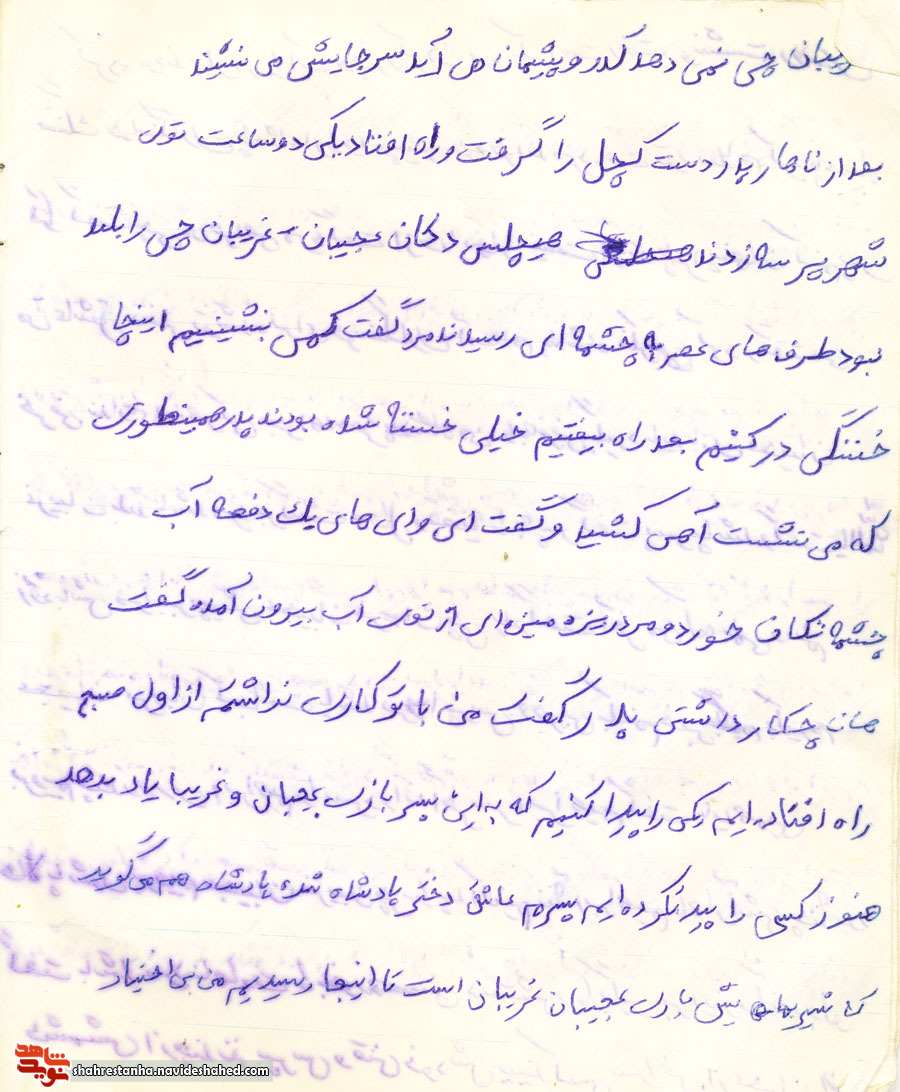 ریبان چی نمی دهد کدر و پشیمان می آید سر جایش می نشیند
بعد از ناهار پدر دست کچل را گرفت و راه افتاد یکی دو ساعت توی
شهر پرسه زدند هیچکس دکان عجیبان - غریبان چی را بلد
نبود طرف های عصر به چشمه ای رسیدند مرد گفت کمی بنشینیم اینجا
خستگی در کنیم بعد راه بیفتیم خیلی خسته شده بودند پدر همینطوری
که می نشست آهی کشید و گفت ای وای های یک دفعه آب
چشمه تکان خورد و مرد ریزه میزه ای از توی آب بیرون آمده گفت
هان چکار داشتی پدر گفت من با تو کاری نداشتم از اول صبح
راه افتاده ایم یکی را پیدا کنیم که به این پسر بازی عجیبان و غریبا یاد بدهد
هنوز کسی را پیدا نکرده ایم پسرم عاشق دختر پادشاه شده پادشاه هم می گوید
که شیر بهایش بازی عجیبان غریبان است تا اینجا رسیدیم من بی اختیار
شاهد
نوید
shahrestanha.navideshahed.com